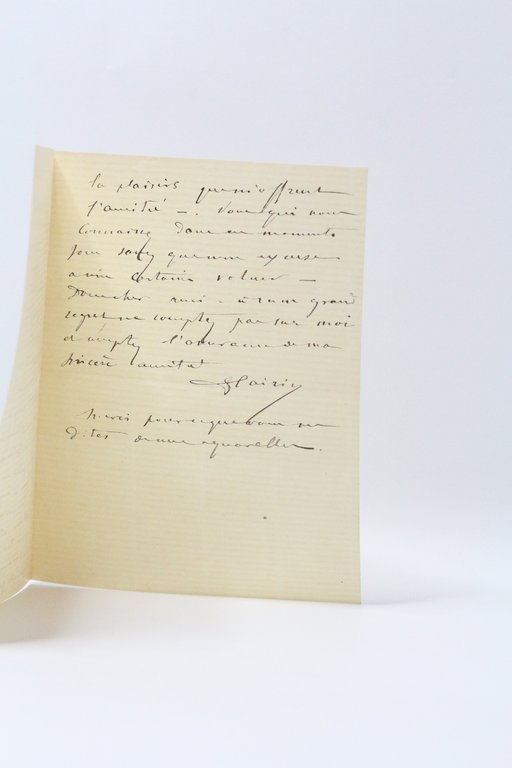 les plaisirs que m'offrent
l'amitié —. Vous qui nous
connaissez dans ce moments
vous savez que mon excuse
a une certaine valeur —
Donc cher ami, à mon grand
regret ne comptez pas sur moi
et acceptez l'assurance de ma
sincère amitié
Clairin
Merci pour ce que vous me
dites de mes aquarelles.